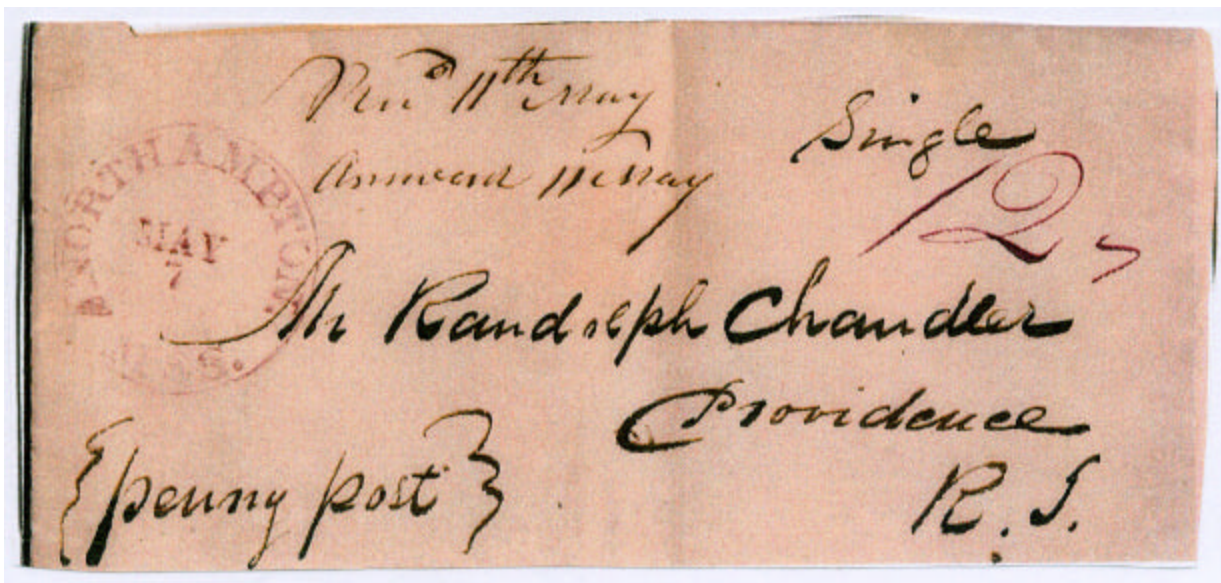 Recd 11th May
Answered 11 May
Single
12
NORTHAMPTON
MAY
7
MAS.
Mr Randolph Chandler
Providence
R. I.
{penny post}